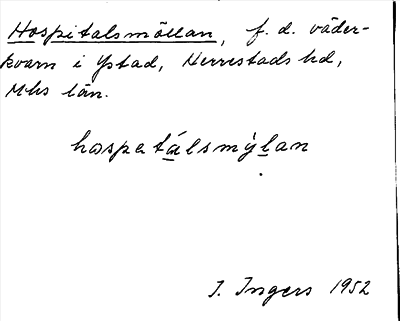 Hospitalsmöllan, f. d. väder-
kvarn i Ystad, Herrestads hd,
Mhs län.
hospetálsmýlan
I. Ingers 1952